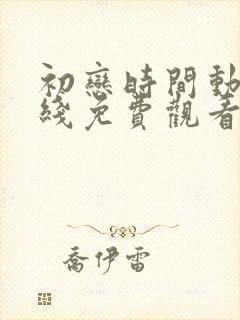 初戀時間動
綫免費觀看
喬伊雷